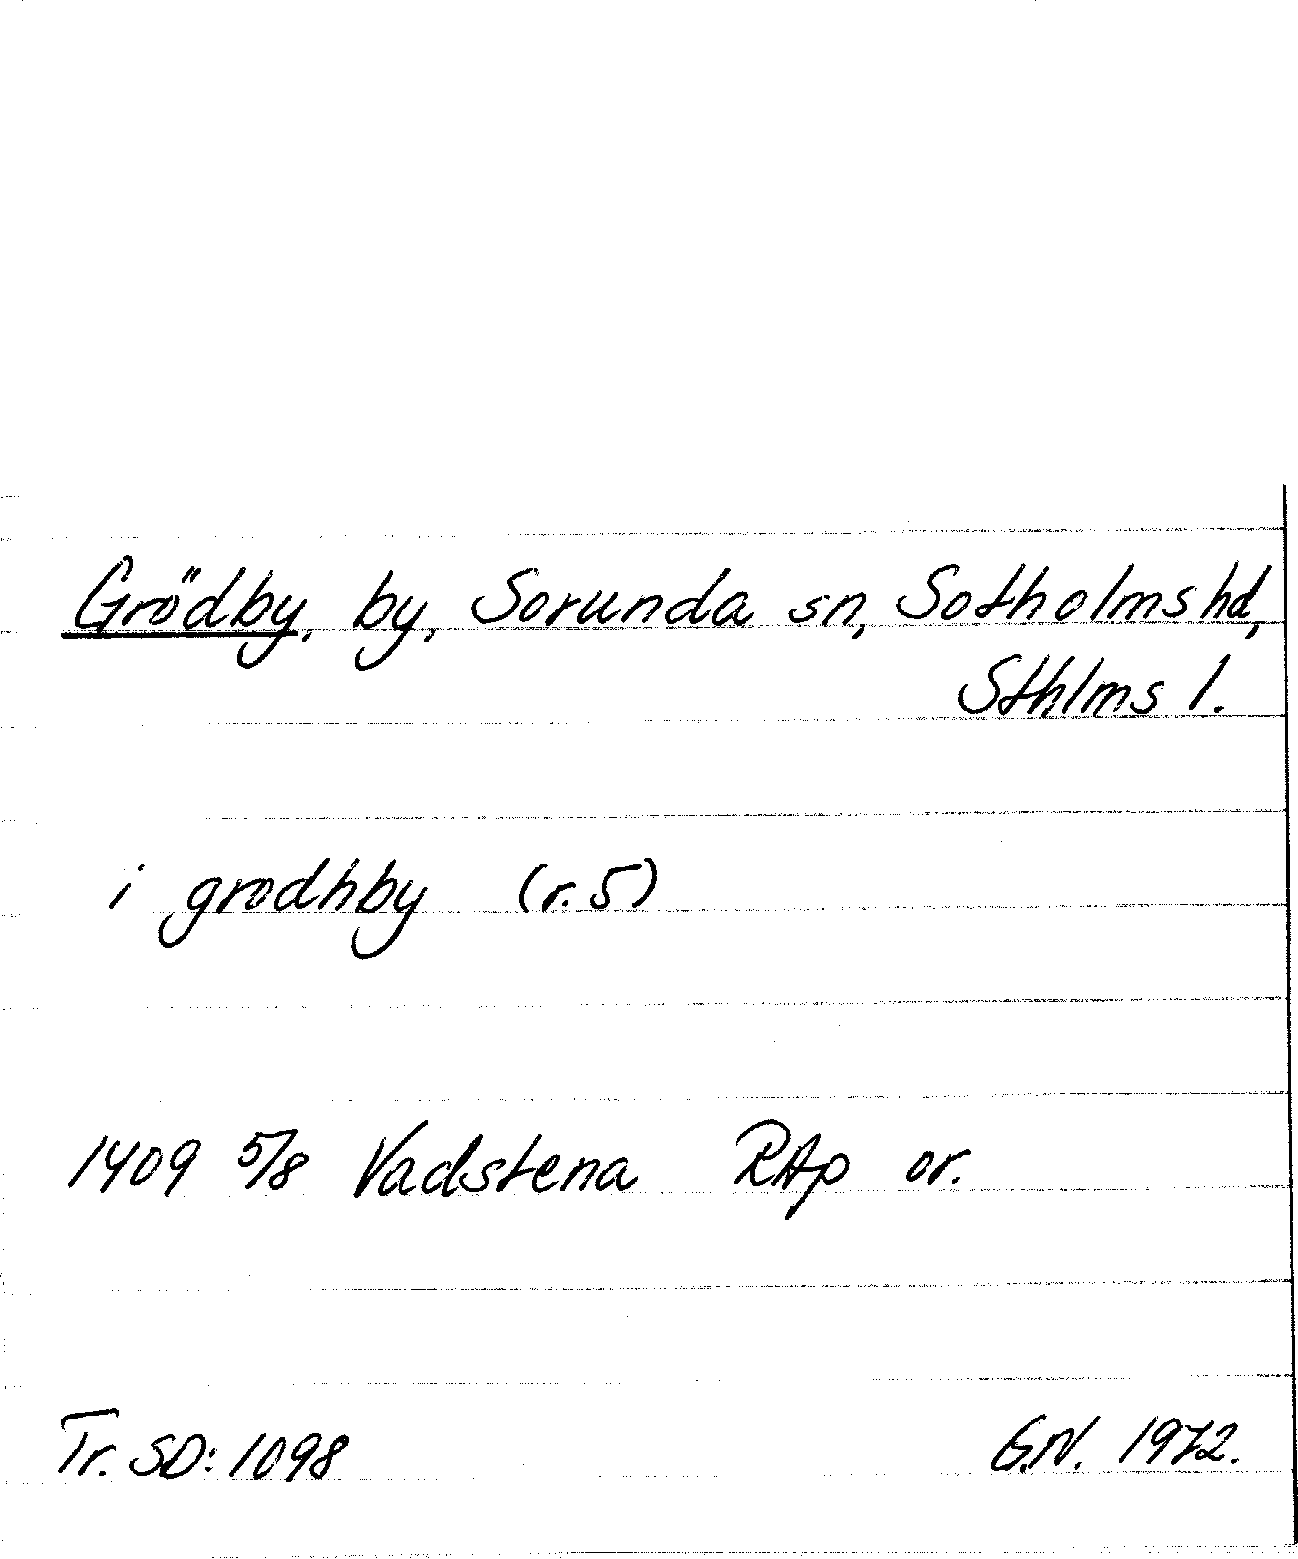 Grödby, by, Sorunda sn, Sotholms hd,
Sthlms l.
i grodhby (r. 5)
1409 5/8 Vadstena RAp or.
Tr. SD: 1098 G.N. 1972.